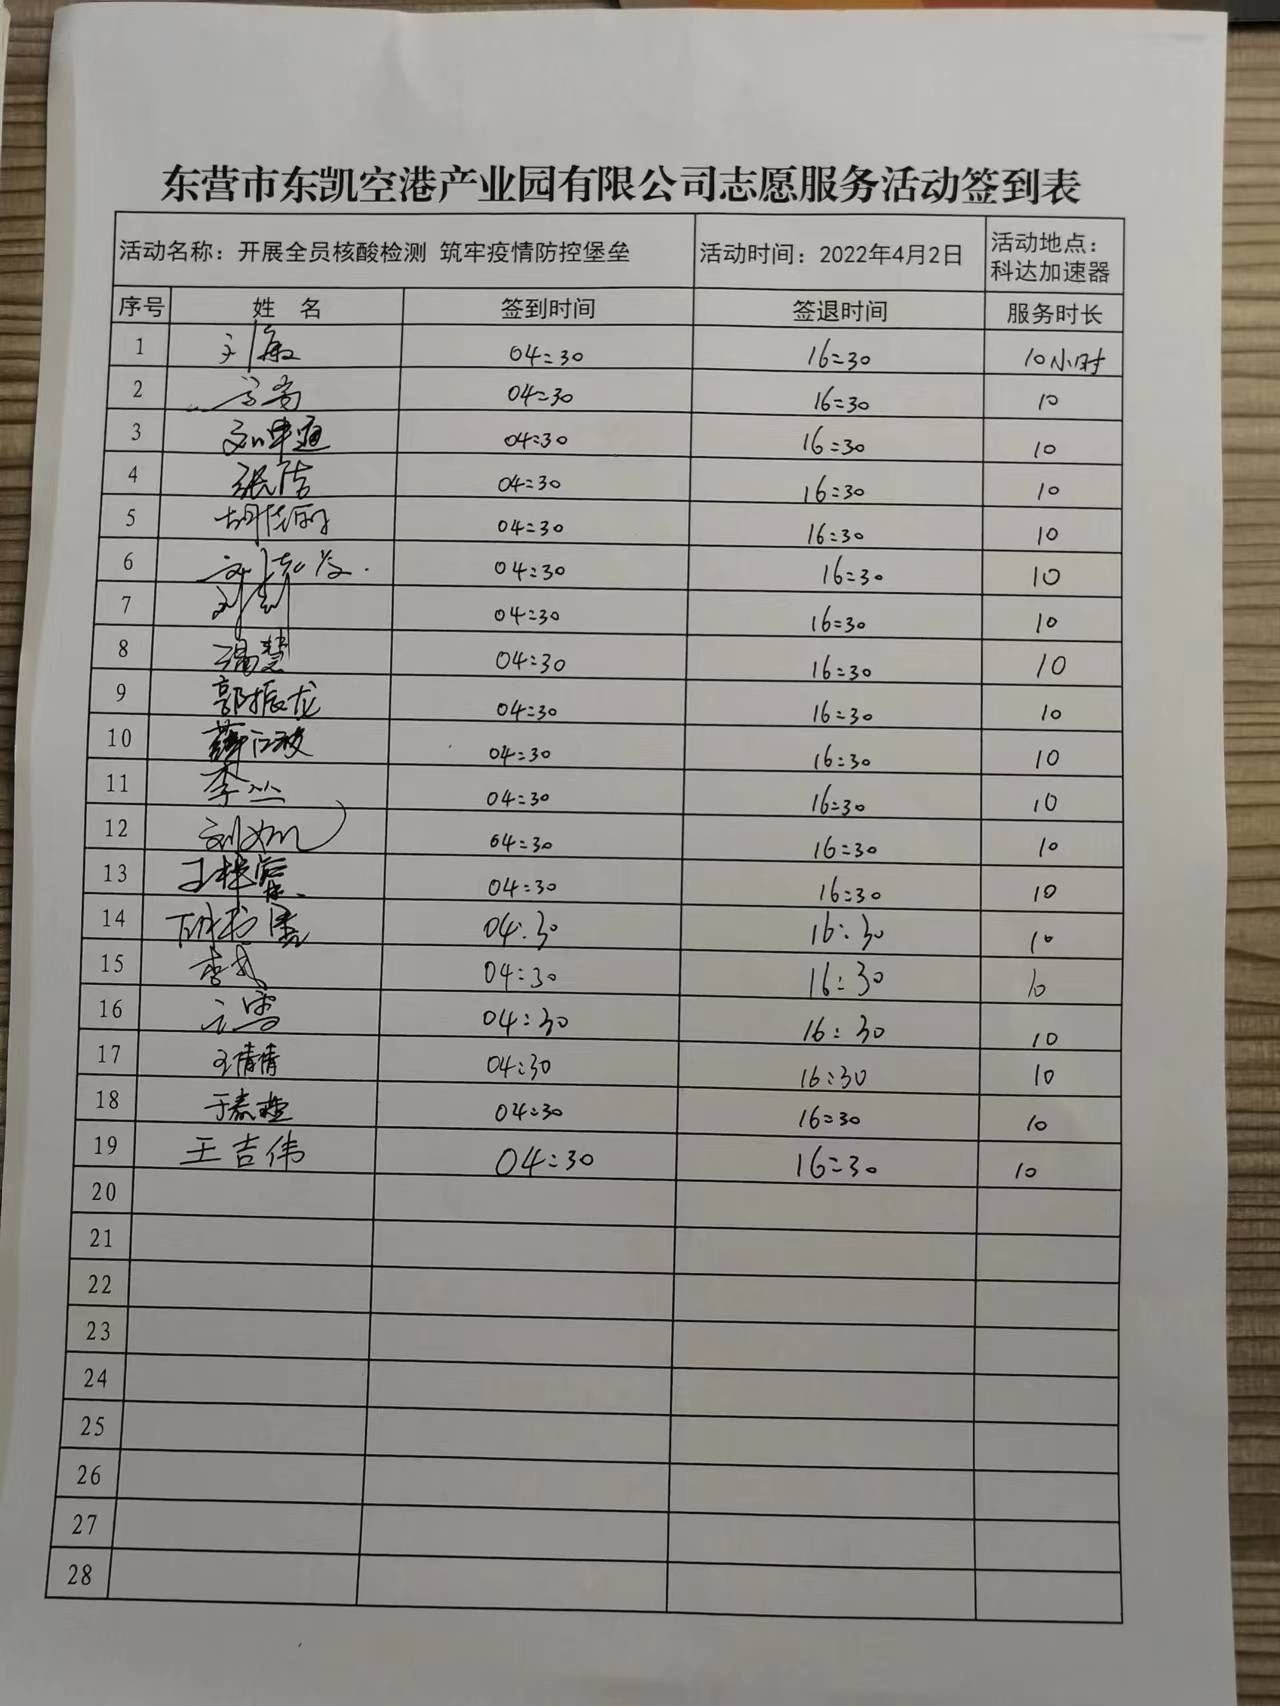 东营市东凯空港产业园有限公司志愿服务活动签到表
活动名称：开展全员核酸检测 筑牢疫情防控堡垒 活动时间：2022年4月2日 活动地点：科达加速器
序号 姓 名 签到时间 签退时间 服务时长
1 04:30 16:30 10小时
2 04:30 16:30 10
3 04:30 16:30 10
4 张洁 04:30 16:30 10
5 04:30 16:30 10
6 04:30 16:30 10
7 04:30 16:30 10
8 04:30 16:30 10
9 郭振龙 04:30 16:30 10
10 04:30 16:30 10
11 04:30 16:30 10
12 04:30 16:30 10
13 04:30 16:30 10
14 04:30 16:30 10
15 04:30 16:30 10
16 04:30 16:30 10
17 王倩倩 04:30 16:30 10
18 04:30 16:30 10
19 王吉伟 04:30 16:30 10
20
21
22
23
24
25
26
27
28